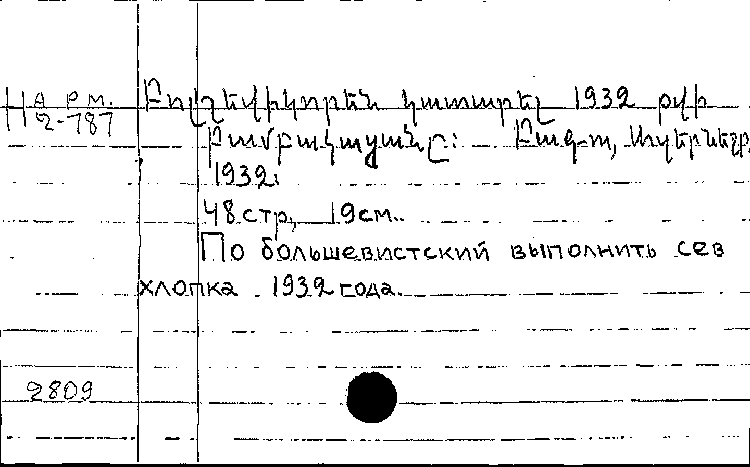 На рм.
2-787
Բոլշեվիկորեն կատարել 1932 թվի
բամբակացանը։ Բագ-ո, Ադրնեշր,
1932։
48стр, 19см.
По большевистский выполнить сев
хлопка 1932 года.
2809